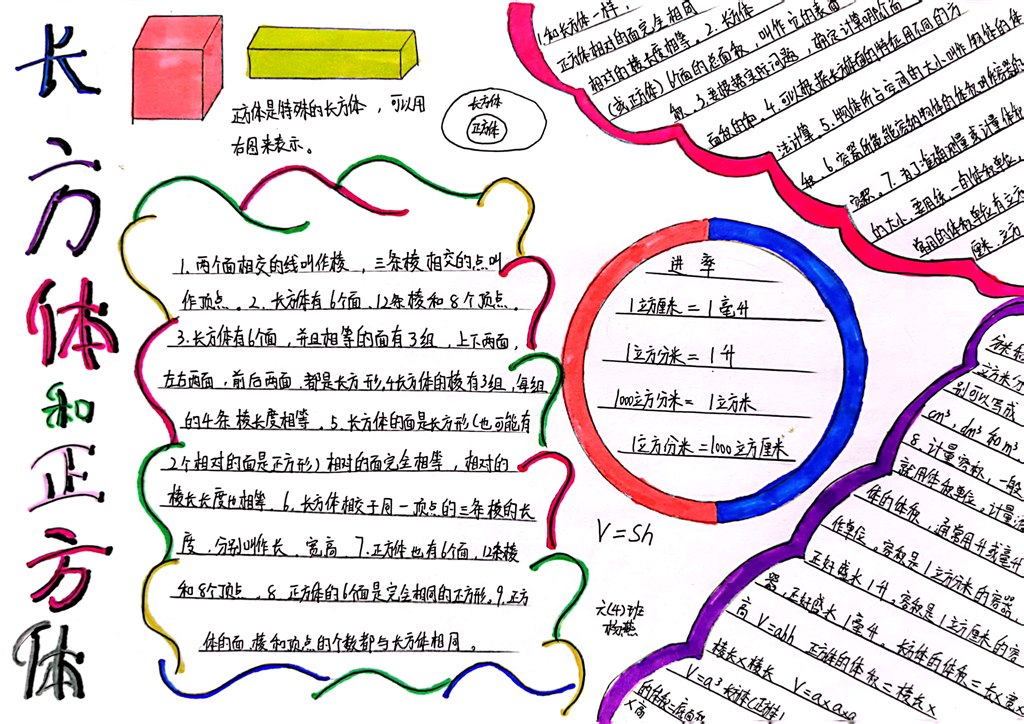 长方体和正方体
正方体是特殊的长方体，可以用
右图来表示。
长方体
正方体
1.两个面相交的线叫作棱，三条棱相交的点叫
作顶点。2.长方体有6个面.12条棱和8个顶点。
3.长方体有6个面，并且相等的面有3组，上下两面，
左右两面，前后两面，都是长方形,4长方体的棱有3组，每组
的4条棱长度相等。5.长方体的面是长方形(也可能有
2个相对的面是正方形)相对的面完全相等，相对的
棱长长度也相等.6.长方体相交于同一顶点的三条棱的长
度.分别叫作长、宽高.7.正方体也有6个面,12条棱
和8个顶点.8.正方体的6个面是完全相同的正方形。9.正方
体的面.棱和顶点的个数都与长方体相同。
进率
1立方厘米=1毫升
1立方分米=1升
1000立方分米=1立方米
1立方分米=1000立方厘米
V=Sh
六(4)班
1.和长方体一样，
正方体相对的面完全相同
相对的棱长度相等。2.长方体
(或正方体)6个面的总面积，叫作它的表面
积。3.要根据实际问题，确定计算哪个面
面积的和。4.可以根据长方体面的特征用不同的方
法计算。5.物体所占空间的大小叫作物体的体
积.6.容器所能容纳物体的体积叫作容器的
容积。7.为了准确测量或计量体积
的大小.要用统一的体积单位，
常用的体积单位有立方
厘米.立方
分米和
立方米分
别可以写成
cm³，dm³和m³
8.计量容积，一般
就用体积单位。计量液
体的体积，通常用升或毫升
作单位。容积是1立方分米的容器
正好盛水1升，容积是1立方厘米的容
器，正好盛水1毫升。长方体的体积=长×宽×
高 V=abh 正方体的体积=棱长×
棱长×棱长 V=a×a×a
V=a³长方体(正方体)
的体积=底面积
×高